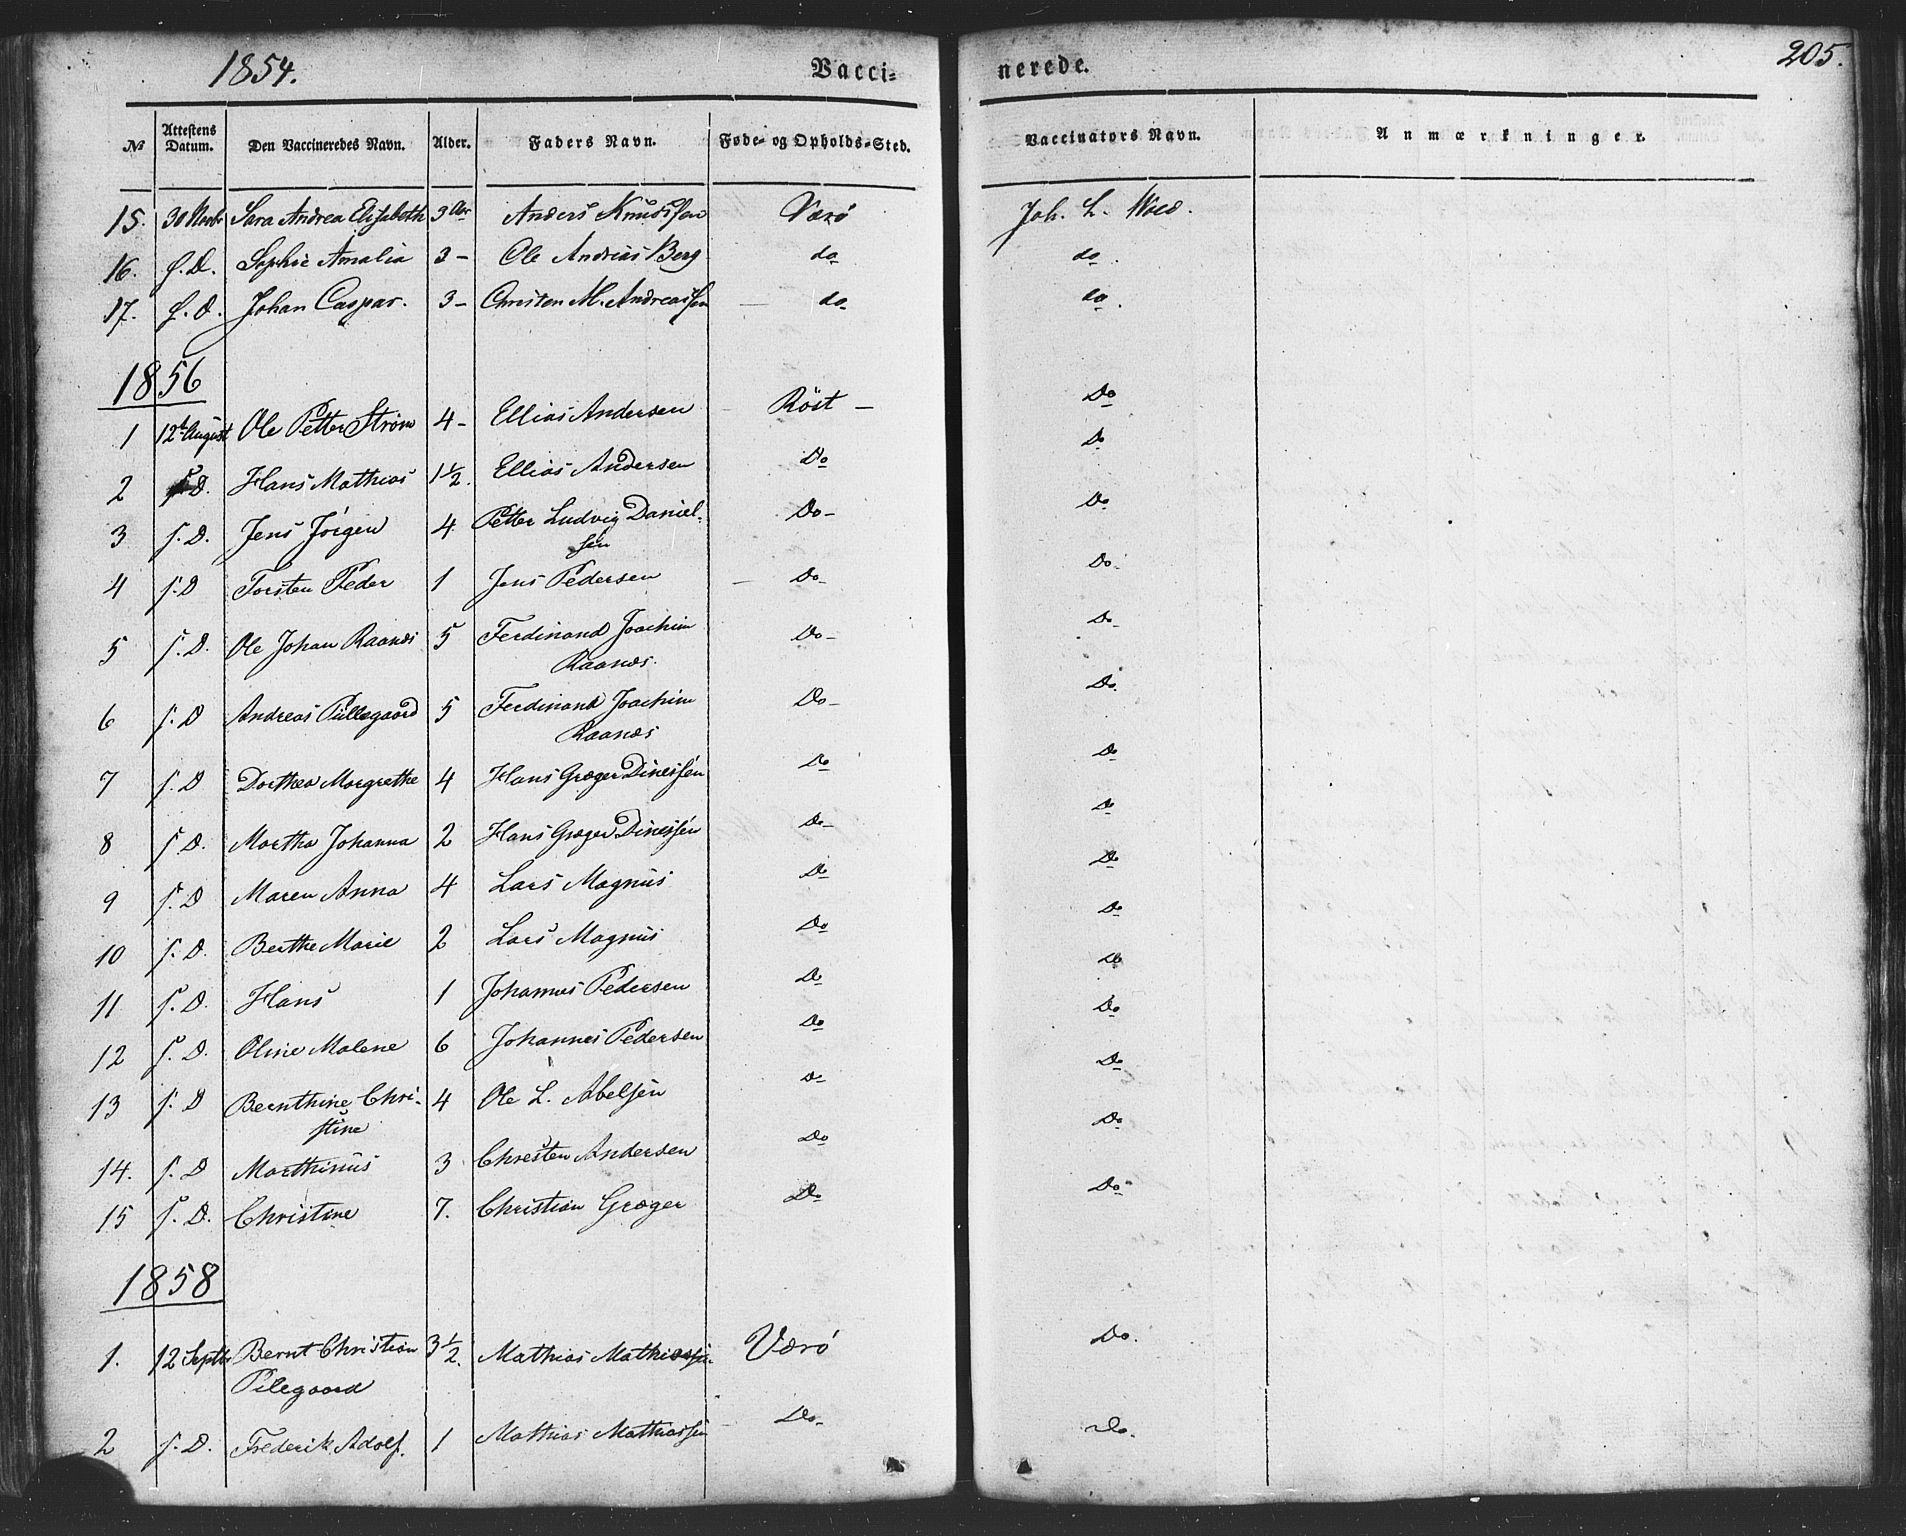 1854. Vacci= nerede. 205.
№ Attestens Datum. Den Vaccineredes Navn. Alder. Faders Navn. Føde- og Opholds-Sted. Vaccinators Navn. Anmærkninger.
15. 30 Novbr Sara Andrea Elisabeth 3 Aar Anders Knudssen Værö Joh. L.
16. f. D. Sophie Amalia 3 – Ole Andreas Berg do do.
17. f. D. Johan Caspar. 3 – Christen M. Andreassen – do do.
1856
1 12te August Ole Petter Strøm 4 – Ellias Andersen – Röst – Do
2 f D. Hans Mathias 1½. Ellias Andersen Do Do
3 f. D. Jens Jörgen 4 Petter Ludvig Daniel- Do – Do
sen
4 f. D Torsten Peder 1 Jens Pedersen – Do – Do.
5 f. D. Ole Johan Raanæs 5 Ferdinand Joachim Do – Do.
Raanæs.
6 f. D Andreas Püllegaard 5 Ferdinand Joachim Do – Do.
Raanæs
7 f. D Dorthea Margrethe 4 Hans Grøger Dinessen Do Do
8 f. D. Martha Johanna 2 Hans Grøger Dinessen Do – Do
9 f. D Maren Anna 4 Lars Magnus Do Do
10 f. D. Berthe Marie 2 Lars Magnus Do Do
11 f. D. Hans 1 Johannes Pedersen Do Do
12 f. D. Oline Malene 6 Johannes Pedersen Do Do
13 f. D Bernthine Chri- 4 Ole L. Abelsen D– Do
stine
14. f. D Marthinus 3 Christen Andersen Do Do
15 f. D. Christine 7. Christian Grøger Do Do
1858
1. 12 Septbr Bernt Christian 3½. Mathias Mathiassen Værö Do.
Pilegaard
2 f. D. Frederik Adolf. 1 Mathias Mathiassen Do – Do.